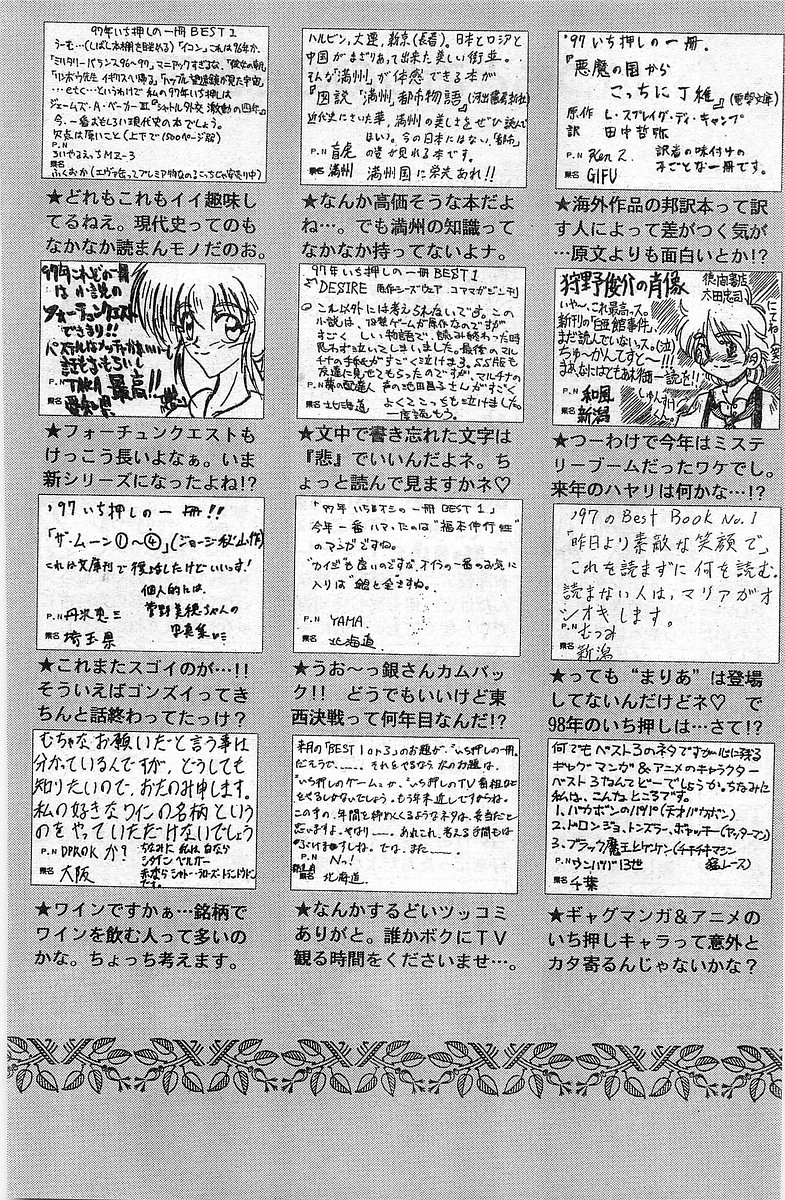 97年いち押しの一冊 BEST 1
うーむ…(しばし本棚を眺める)「イコン」これは96年か、
「ミリタリーバランス96〜97」マニアックすぎるな、
…etc…というわけで私の97年いち押しは
ジェームズ・A・ベーカーⅢ「シャトル外交 激動の四年」
今、一番おもしろい現代史の本でしょう。
欠点は厚いこと(上下で1500ページ超)
P.N
ちいやまえっちMZ-3
県名
ふくおか
★どれもこれもイイ趣味し
てるねえ。現代史っても
なかなか読まんモノだのお。
ハルビン,大連,新京(長春)。日本とロシアと
中国がまざりあって出来た美しい街並。。
そんな「満州」が体感できる本が
『図説「満州」都市物語』(河出書房新社)
近代史にさいた華,満州の美しさをぜひ読んで
ほしい。今の日本にはない、「都市」
の姿が見れる本です。
P.N 盲虎
県名 満州 満州国に栄えあれ!!
★なんか高価そうな本だよ
ね…。でも満州の知識って
なかなか持ってないよナ。
'97いち押しの一冊.
『悪魔の国から
こっちに丁稚』(電撃文庫)
原作 L・スプレイグ・ディ・キャンプ
訳 田中哲弥
P.N Ken Z. 訳者の味付けの
みごとな一冊です。
県名 GIFU
★海外作品の邦訳本って訳
す人によって差がつく気が
…原文よりも面白いとか!?
97年これぞの一冊
は小説の
フォーチュンクエスト
できまり!!
話もおもろいし
P.N TAKA 最高!!
県名 愛知県
★フォーチュンクエストも
けっこう長いよなぁ。いま
新シリーズになったよね!?
97年いち押しの一冊BEST1
DESIRE 原作シーズウェア コアマガジン刊
これ以外には考えられないです。この
小説は、18禁ゲームが原作なのですが
すごく しい物語で、読み終わった時
思わず泣いてしまいました。最後のマル
チナの手紙がすごく泣けます。SS版も
友達に見せてもらったのですが、マルチナの
P.N 夢の配達人 声の池田昌子さんがすごく
よくてこっちも泣けました。
県名 北海道 一度読もう。
★文中で書き忘れた文字は
『悲』でいいんだよネ。ち
ょっと読んで見ますかネ♡
狩野俊介の肖像 徳間書店
太田忠司
いや〜、これ最高っス。
新刊の「白亜館事件」、
まだ読んでいないス。(泣)
ちゅーかんてすと〜!!!
P.N 和風
県名 新潟
★つーわけで今年はミステ
リーブームだったワケでし。
来年のハヤリは何かな…!?
'97いち押しの一冊!!
「ザ・ムーン①〜④」(ジョージ秋山作)
これは文庫刊で復活したけどいいっす!
個人的には、
菅野美穂ちゃんの
写真集…
P.N 丹沢恵三
県名 埼玉県
★これまたスゴイのが…!!
そういえばゴンズイってき
ちんと話終わってたっけ?
「97年いちオシの一冊BEST1」
今年一番ハマったのは"福本伸行姓"
のマンガですね。
"カイジ"も良いのですな、オイラの一番のお気に
入りは"銀と金"ですね。
P.N YAMA
県名 北海道
★うお〜っ銀さんカムバッ
ク!! どうでもいいけど東
西決戦って何年目なんだ!?
'97のBest Book No.1
「昨日より素敵な笑顔で」
これを読まずに何を読む.
読まない人は,マリアがオ
シオキします。
P.N むつみ
県名 新潟
★っても"まりあ"は登場
してないんだけどネ♡ で
98年のいち押しは…さて!?
むちゃなお願いだと言う事は
分かっているんですが、どうしても
知りたいので、おたのみ申します。
私の好きなワインの名柄という
のをやっていただけないでしょう
か?
P.N DPROK ちなみに私は白なら
シタインベルガー
赤なら シャトー・ラローズ・トラントドン
県名 大阪 です。
★ワインですかぁ…銘柄で
ワインを飲む人って多いの
かな。ちょっち考えます。
来月の「BEST 1 or 3」のお題が、"いち押しの一冊"
だそうで、……それをやるなら次のお題は、
"いち押しのゲーム"とか、"いち押しのTV番組"など
をやるしかないでしょう。もう年末近しですからね。
この手の、年間を締めくくるようなネタは、妥当だと
思いますよ。やはり……。あれこれ、考える手間も
はぶけますしね。では、また……。
P.N Nっ!
県名 北海道.
★なんかするどいツッコミ
ありがと。誰かボクにTV
観る時間をくださいませ…。
何でもベスト3のネタですが、心に残る
ギャグマンガ&アニメのキャラクター
ベスト3なんてどーでしょうか。ちなみに
私は、こんなところです。
1.バカボンのパパ(天才バカボン)
2.ドロンジョ・トンズラー・ボヤッキー(ヤッターマン)
3.ブラック魔王とケンケン(チキチキマシン
猛レース)
P.N ウンババ13世
県名 千葉
★ギャグマンガ&アニメの
いち押しキャラって意外と
カタ寄るんじゃないかな?